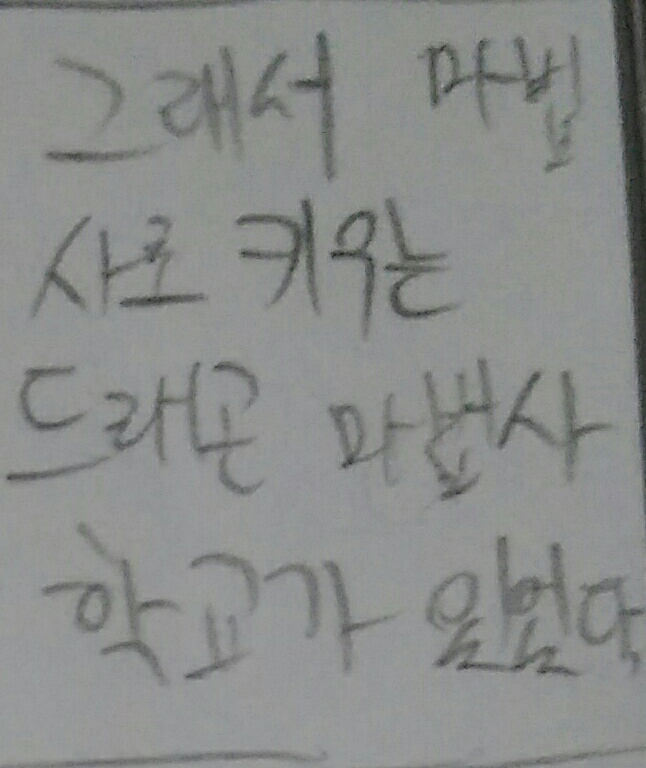 그래서 마법
사로 키우는
드래곤 마법사
학교가 있었다